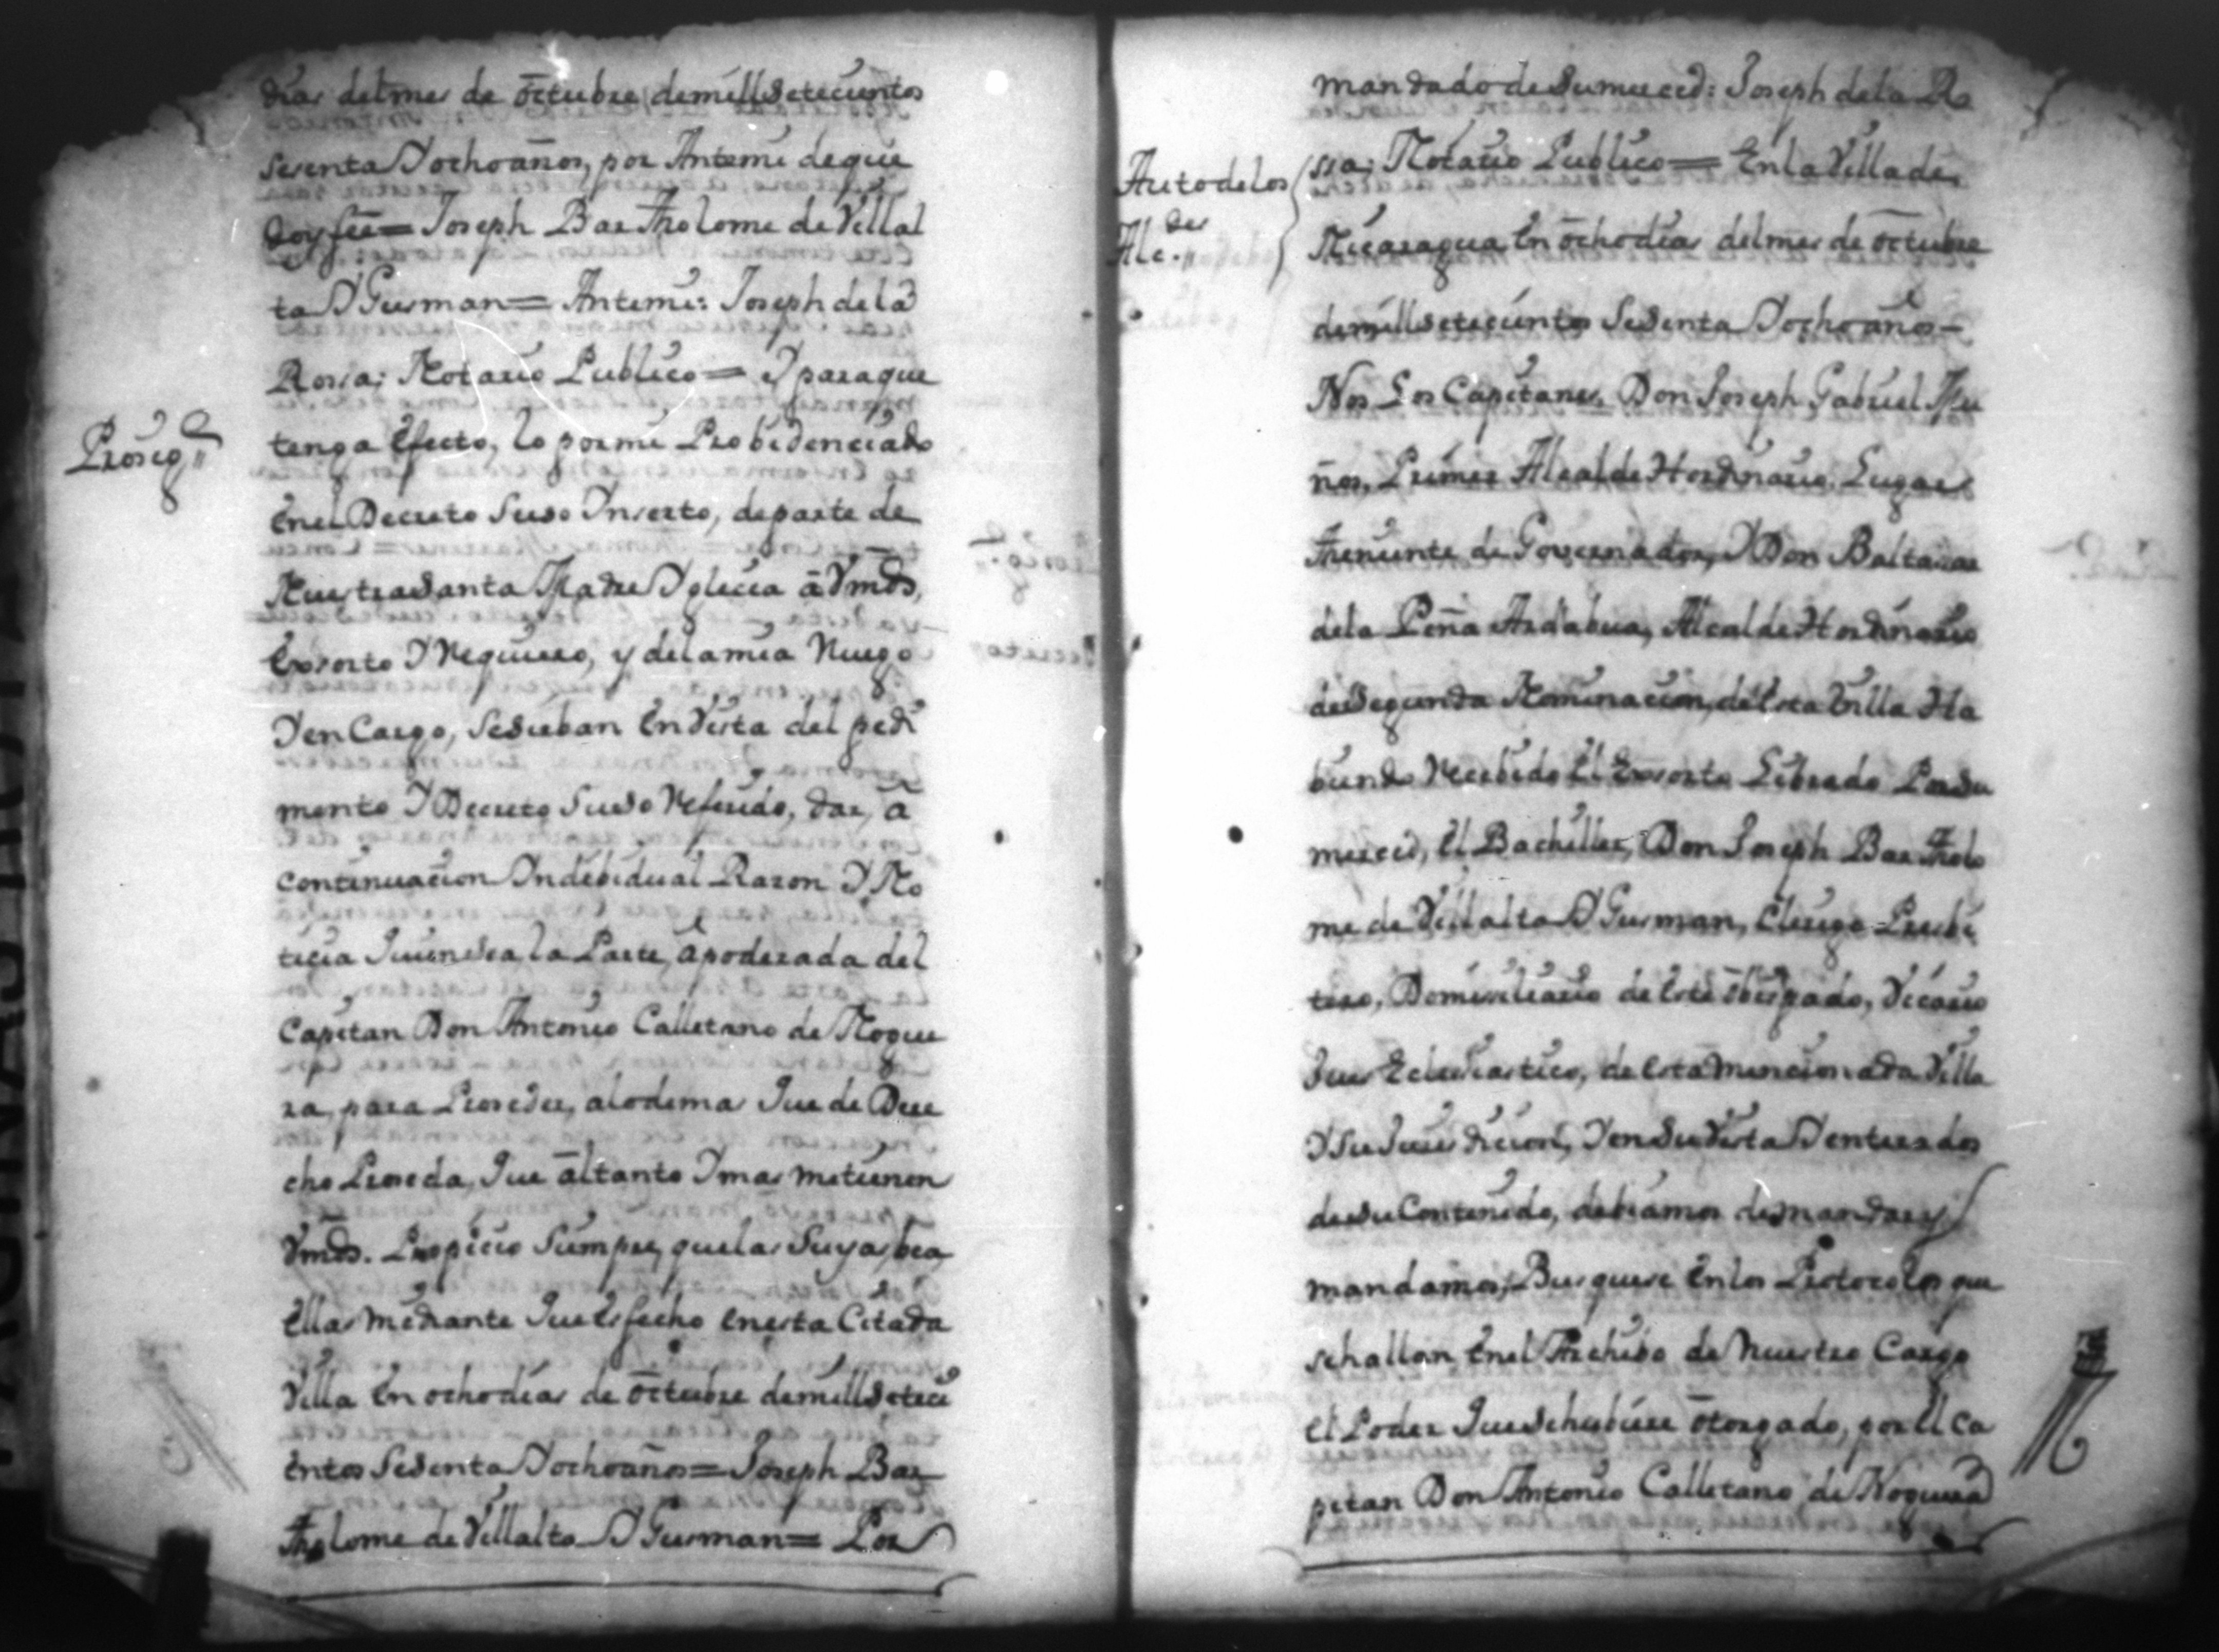 dias delmes de octubre demill setecientos
sesenta Y ocho años, por Antemi deque
doy fee = Joseph Bartholome de Villal
ta Y Gusman = Antemi: Joseph dela
Rossa: Notario Publico = Y paraque
Prosig.e
tenga Efecto, lo pormi Probidenciado
Enel Decreto Suso Ynserto, departe de
Nuestra Santa Madre Yglecia â Vmds,
Exsorto Y Requiero, y delamia Ruego
Y en Cargo, Sesirban En Vista del pedi
mento Y Decreto Suso Referido, dar, â
continuacion Yndibidual Razon Y No
ticia Quien sea la Parte, Apoderada del
Capitan Don Antonio Calletano de Nogue
ra, para Proseder, alodemas Que de Dere
cho Proseda, Que âltanto Y mas metienen
Vmds. Propicio Siempre, quelas Suyas bea
Ellas mediante Que Es fecho Enesta Citada
Villa En ocho dias de octubre demill setesi
entos Sesenta Y ocho años = Joseph Bar
Tholome de Villalta Y Gusman = Por
mandado de Sumerced: Joseph dela Ro
Auto delos
Alc.des
ssa: Notario Publico = En la Villa de
Nicaragua En ocho dias delmes de octubre
demill setecientos Sesenta Y ocho años =
Nos Los Capitanes, Don Joseph Gabriel Mu
ños, Primer Alcalde Hordinario, Lugar
Theniente de Governador, Y Don Baltasar
dela Peña Ardabua, Alcalde Hordinario
de Segunda Nominacion, de Esta Villa Ha
biendo Recebido El Exsorto Librado Porsu
merced, El Bachiller, Don Joseph Bartholo
me de Villalta Y Gusman, Clerigo Presbi
tero, Domisiliario de Este Obispado, Vicario
Jues Eclesiastico, de Esta mencionada Villa
Y Su Jurisdicion, Y en Su Vista Y enterados
desu Contenido, debiamos de mandar y
mandamos, Busquese En los Protocolos que
sehallan Enel Archibo de Nuestro Cargo
el Poder Que Sehubiere otorgado, por El Ca
pitan Don Antonio Calletano de Noguera